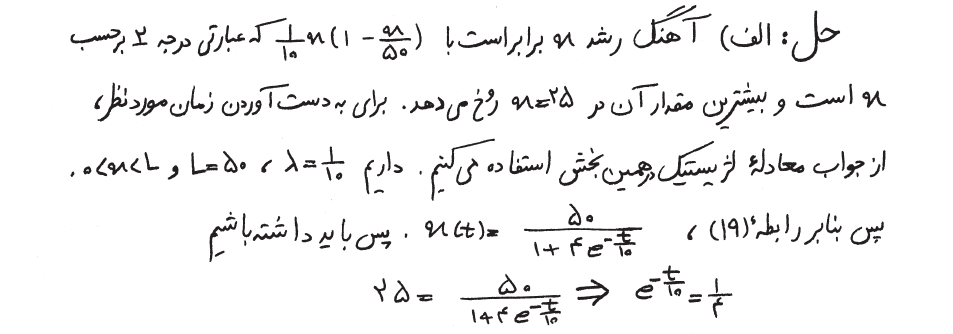 حل: الف) آهنگ رشد x برابر است با (1 - x/۵۰)x ۱/۱۰ که عبارتی درجه ۲ برحسب
x است و بیشترین مقدار آن در x=۲۵ رخ می‌دهد. برای به دست آوردن زمان موردنظر،
از جواب معادلهٔ لژیستیک در همین بخش استفاده می‌کنیم. داریم λ=۱/۱۰ ، L=۵۰ و ۰<x<L.
پس بنابر رابطهٔ (۱۹) ، x(t)= ۵۰/(۱+۴e^(-t/۱۰)) . پس باید داشته باشیم
۲۵ = ۵۰/(۱+۴e^(-t/۱۰)) ⇒ e^(-t/۱۰) = ۱/۴